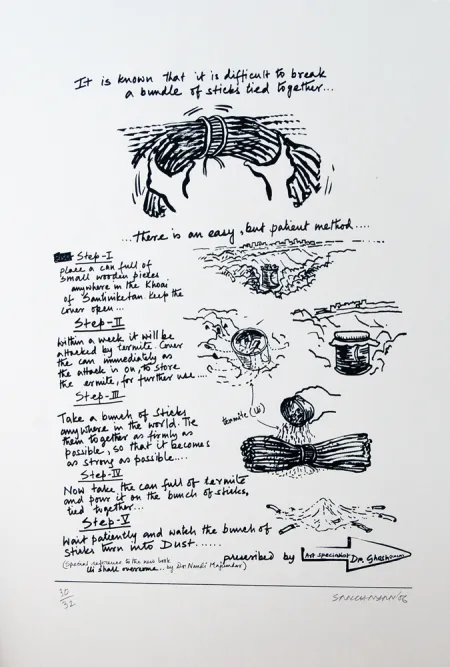 It is known that it is difficult to break
a bundle of sticks tied together...
...There is an easy, but patient method....
Step-I
place a can full of
small wooden pieces
anywhere in the Khoai
of Santiniketan keep the
cover open...
Step-II
within a week it will be
attacked by termite. Cover
the can immediately as
the attack is on, to store
the ermite, for further use....
Step-III
termite (Ui)
Take a bunch of sticks
anywhere in the world. Tie
them together as firmly as
possible, so that it becomes
as strong as possible....
Step-IV
Now take the can full of termite
and pour it on the bunch of sticks,
tied together...
Step-V
Wait patiently and watch the bunch of
sticks turn into Dust......
prescribed by Art specialist Dr.
(Special reference to the new book
Ui shall overcome.. by Dr. Nandi Majumdar)
30/32